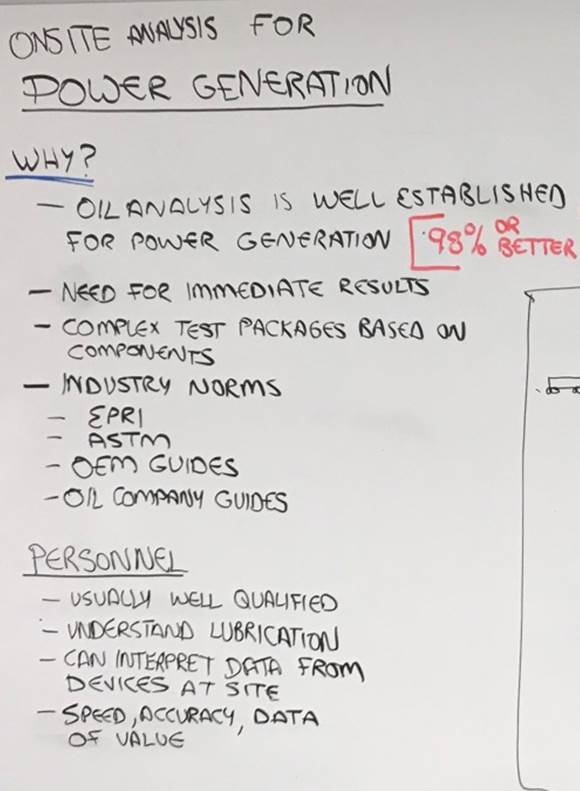 ONSITE ANALYSIS FOR
POWER GENERATION
WHY?
- OIL ANALYSIS IS WELL ESTABLISHED
FOR POWER GENERATION [98% OR BETTER
- NEED FOR IMMEDIATE RESULTS
- COMPLEX TEST PACKAGES BASED ON
COMPONENTS
- INDUSTRY NORMS
- EPRI
- ASTM
- OEM GUIDES
- OIL COMPANY GUIDES
PERSONNEL
- USUALLY WELL QUALIFIED
- UNDERSTAND LUBRICATION
- CAN INTERPRET DATA FROM
DEVICES AT SITE
- SPEED, ACCURACY, DATA
OF VALUE